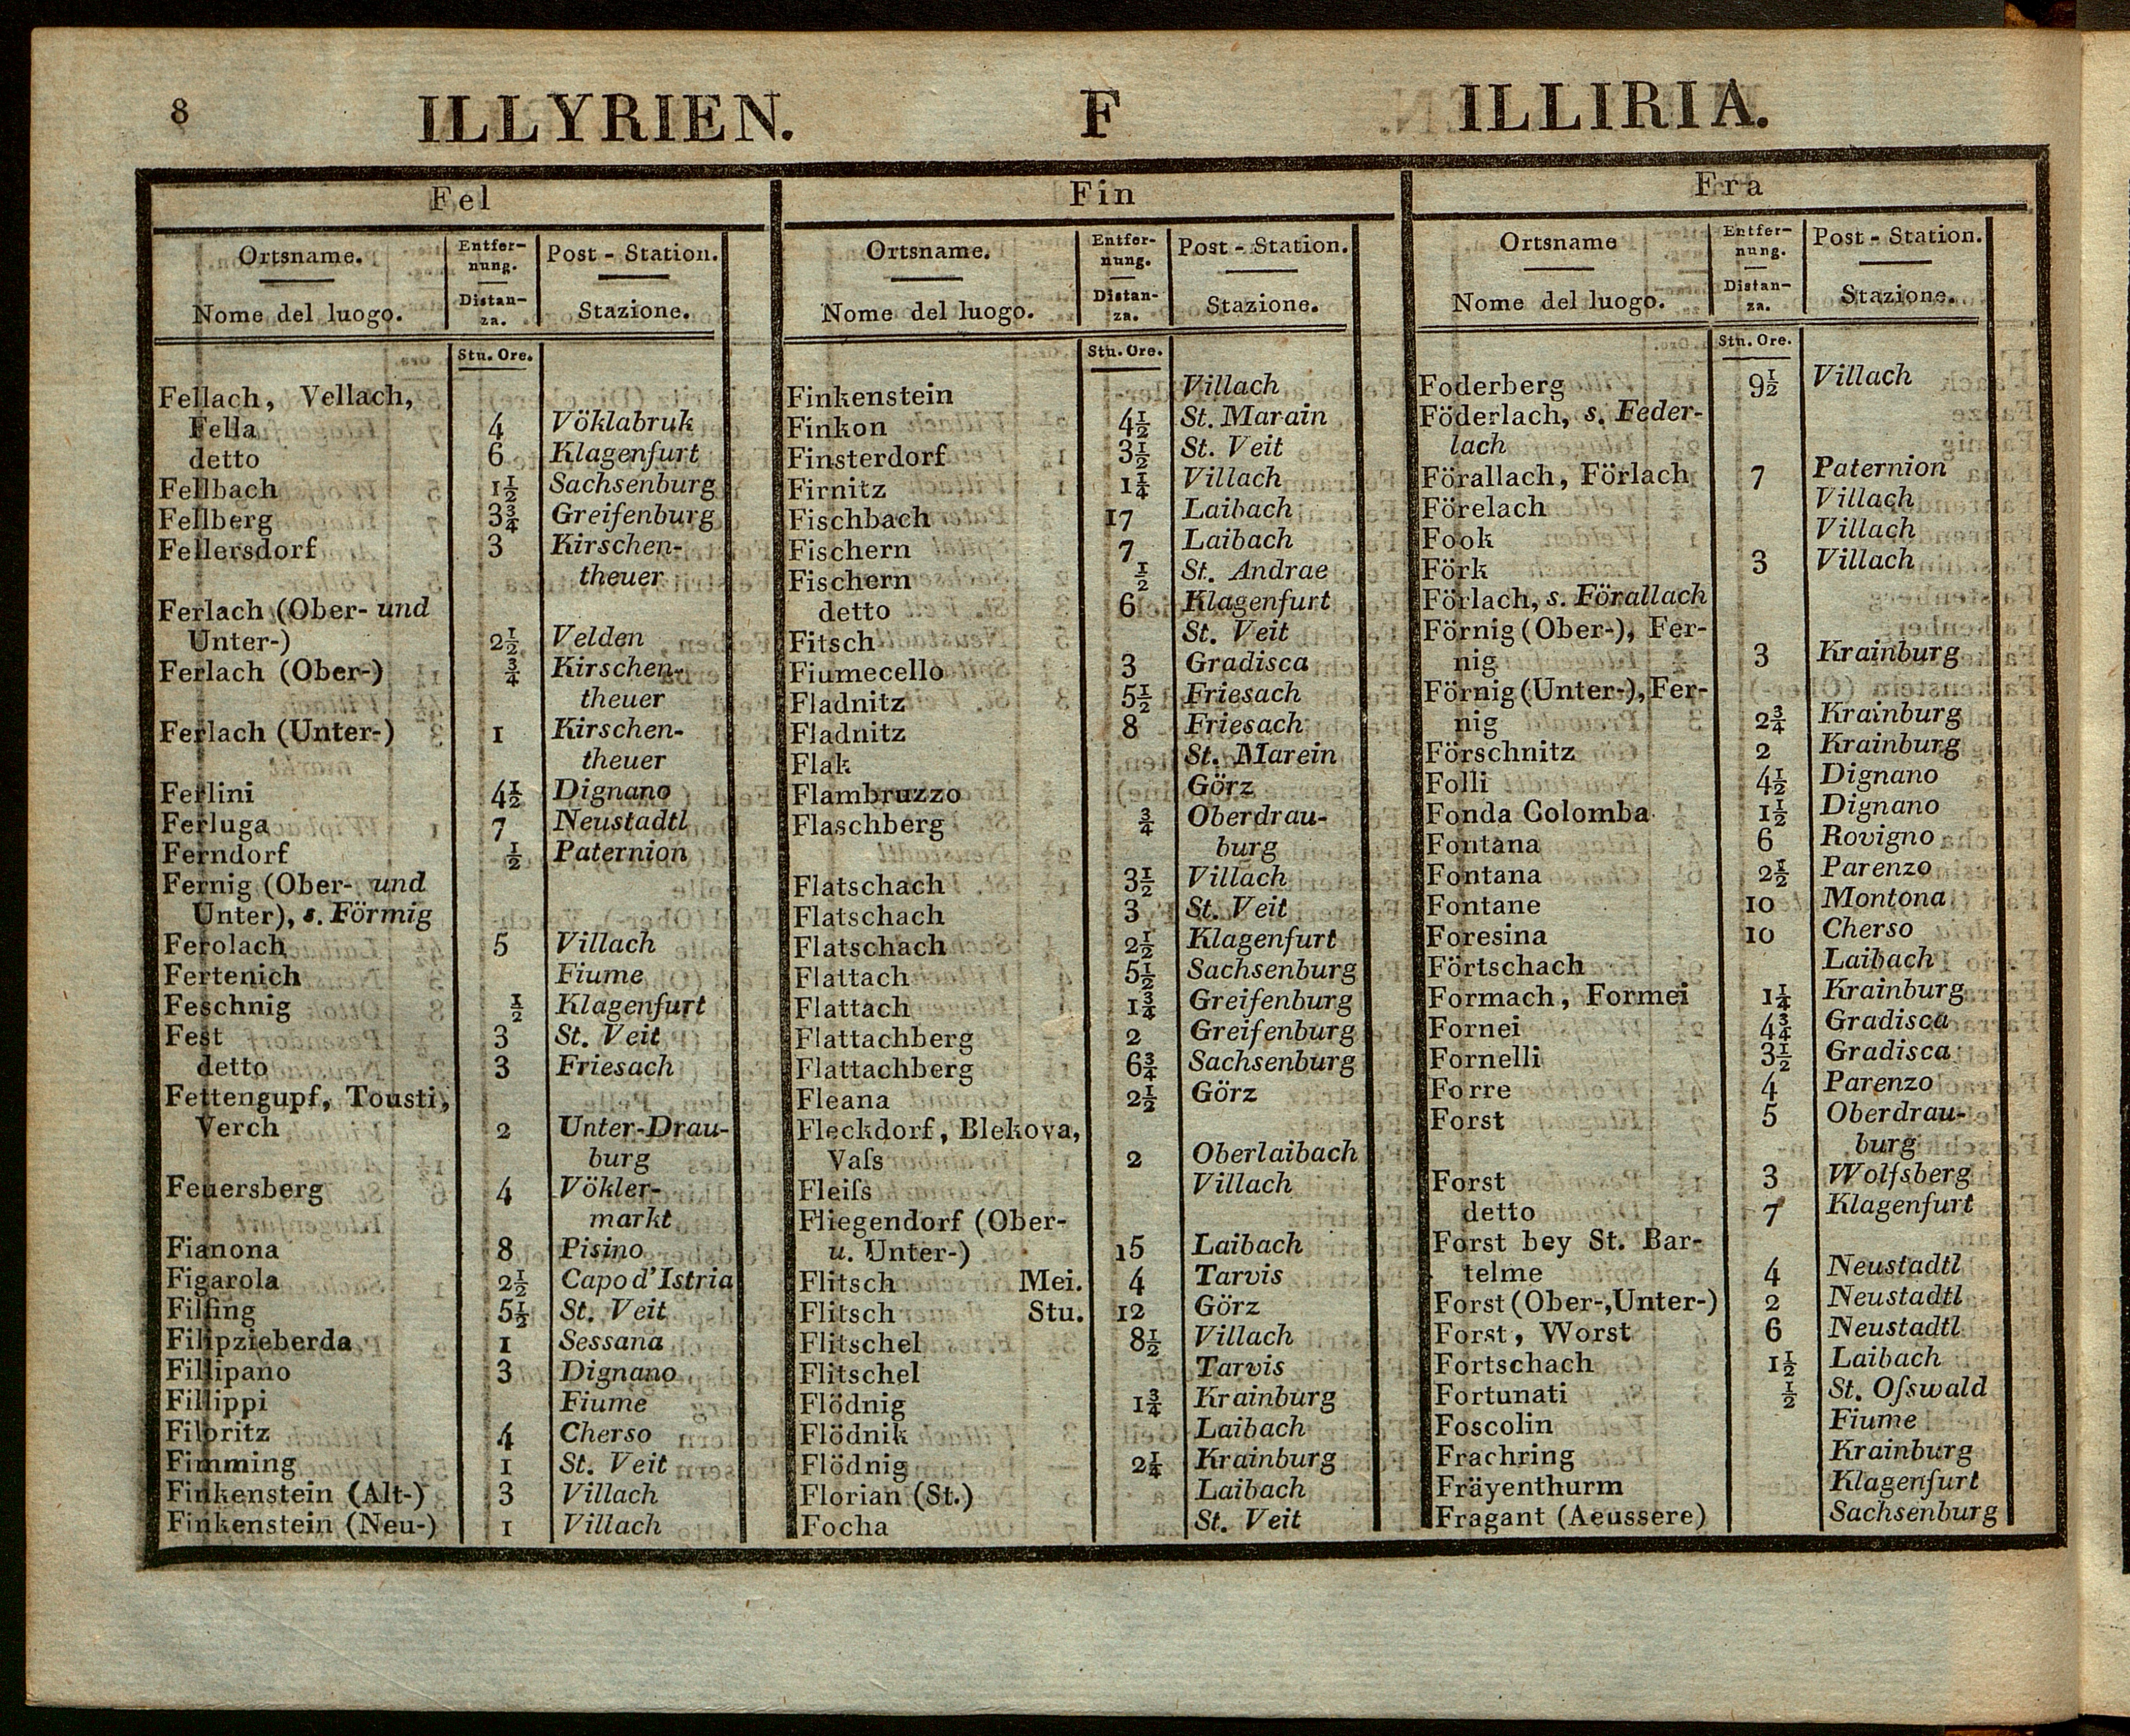 8 ILLYRIEN. F ILLIRIA.
Fel
Ortsname. Entfer- Post - Station.
nung.
Nome del luogo. Distan- Stazione.
za.
Stu. Ore.
Fellach, Vellach,
Fella 4 Vöklabruk
detto 6 Klagenfurt
Fellbach 1½ Sachsenburg
Fellberg 3¾ Greifenburg
Fellersdorf 3 Kirschen-
theuer
Ferlach (Ober- und
Unter-) 2½ Velden
Ferlach (Ober-) ¾ Kirschen-
theuer
Ferlach (Unter-) 1 Kirschen-
theuer
Ferlini 4½ Dignano
Ferluga 7 Neustadtl
Ferndorf ½ Paternion
Fernig (Ober- und
Unter), s. Förmig
Ferolach 5 Villach
Fertenich Fiume
Feschnig ½ Klagenfurt
Fest 3 St. Veit
detto 3 Friesach
Fettengupf, Tousti,
Verch 2 Unter-Drau-
burg
Feuersberg 4 Vökler-
markt
Fianona 8 Pisino
Figarola 2½ Capo d'Istria
Filfing 5½ St. Veit
Filipzieberda 1 Sessana
Fillipano 3 Dignano
Fillippi Fiume
Filoritz 4 Cherso
Fimming 1 St. Veit
Finkenstein (Alt-) 3 Villach
Finkenstein (Neu-) 1 Villach
Fin
Ortsname. Entfer- Post - Station.
nung.
Nome del luogo. Distan- Stazione.
za.
Stu. Ore.
Finkenstein Villach
Finkon 4½ St. Marain
Finsterdorf 3½ St. Veit
Firnitz 1¼ Villach
Fischbach 17 Laibach
Fischern 7 Laibach
Fischern ½ St. Andrae
detto 6 Klagenfurt
Fitsch St. Veit
Fiumecello 3 Gradisca
Fladnitz 5½ Friesach
Fladnitz 8 Friesach
Flak St. Marein
Flambruzzo Görz
Flaschberg ¾ Oberdrau-
burg
Flatschach 3½ Villach
Flatschach 3 St. Veit
Flatschach 2½ Klagenfurt
Flattach 5½ Sachsenburg
Flattach 1¾ Greifenburg
Flattachberg 2 Greifenburg
Flattachberg 6¾ Sachsenburg
Fleana 2½ Görz
Fleckdorf, Blekova,
Vaſs 2 Oberlaibach
Fleiſs Villach
Fliegendorf (Ober-
u. Unter-) 15 Laibach
Flitsch Mei. 4 Tarvis
Flitsch Stu. 12 Görz
Flitschel 8½ Villach
Flitschel Tarvis
Flödnig 1¾ Krainburg
Flödnik Laibach
Flödnig 2¼ Krainburg
Florian (St.) Laibach
Focha St. Veit
Fra
Ortsname Entfer- Post - Station.
nung.
Nome del luogo. Distan- Stazione.
za.
Stu. Ore.
Foderberg 9½ Villach
Föderlach, s. Feder-
lach
Förallach, Förlach 7 Paternion
Förelach Villach
Fook Villach
Förk 3 Villach
Förlach, s. Förallach
Förnig (Ober-), Fer-
nig 3 Krainburg
Förnig (Unter-), Fer-
nig 2¾ Krainburg
Förschnitz 2 Krainburg
Folli 4½ Dignano
Fonda Colomba 1½ Dignano
Fontana 6 Rovigno
Fontana 2½ Parenzo
Fontane 10 Montona
Foresina 10 Cherso
Förtschach Laibach
Formach, Formei 1¼ Krainburg
Fornei 4¾ Gradisca
Fornelli 3½ Gradisca
Forre 4 Parenzo
Forst 5 Oberdrau-
burg
Forst 3 Wolfsberg
detto 7 Klagenfurt
Forst bey St. Bar-
telme 4 Neustadtl
Forst (Ober-, Unter-) 2 Neustadtl
Forst, Worst 6 Neustadtl
Fortschach 1½ Laibach
Fortunati ½ St. Oſswald
Foscolin Fiume
Frachring Krainburg
Fräyenthurm Klagenfurt
Fragant (Aeussere) Sachsenburg